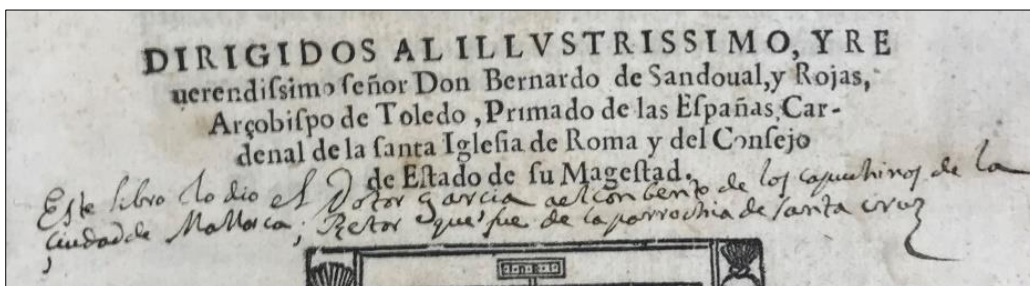 DIRIGIDOS AL ILLVSTRISSIMO, Y RE
uerendiſsimo ſeñor Don Bernardo de Sandoual, y Rojas,
Arçobiſpo de Toledo, Primado de las Eſpañas, Car-
denal de la ſanta Igleſia de Roma y del Conſejo
de Eſtado de ſu Mageſtad.
Este libro lo dio el Dotor Garcia al conbento de los capuchinos de la
Ciudad de Mallorca; Retor que fue de la parrochia de santa cruz